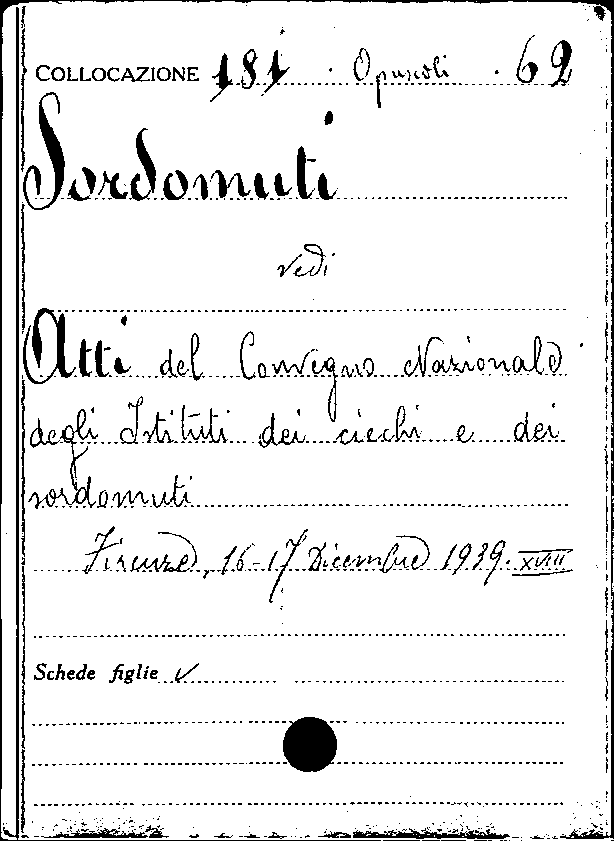 COLLOCAZIONE 181 · Opuscoli · 62
Sordomuti
vedi
Atti del Convegno Nazionale
degli Istituti dei ciechi e dei
sordomuti
Firenze, 16-17 Dicembre 1939. XVIII
Schede figlie ✓